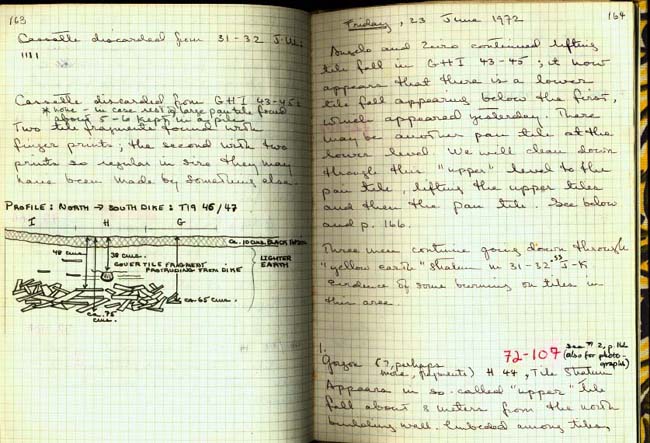 163
Cassette discarded from 31-32 J-K:
1111
Cassette discarded from GHI 43-45:
* none - in case rest of large pan tile found
about 5-6 kept in a pile.
Two tile fragments found with
finger prints; the second with two
prints so regular in size they may
have been made by something else.
PROFILE: NORTH → SOUTH DIKE: T19 45/47
I H G
ca. 10 cms. BLACK TOPSOIL
48 cms. 38 cms. LIGHTER
EARTH
COVER TILE FRAGMENT
PROTRUDING FROM DIKE
ca. 65 cms.
ca. 75
cms.
Friday, 23 June 1972 164
Angelo and Zeiro continued lifting
tile fall in GHI 43-45; it now
appears that there is a lower
tile fall appearing below the first,
which appeared yesterday. There
may be another pan tile at the
lower level. We will clean down
through this "upper" level to the
pan tile, lifting the upper tiles
and then the pan tile. See below
and p. 166.
Three men continue going down through
"yellow earth" stratum in 31-32 J-K.
Evidence of some burning on tiles in
this area.
1. 72-107 see #2, p. 162
(also for photo-
graphs)
Gorgon (?, perhaps
more, fragments) H 44, Tile Stratum
Appears in so-called "upper" tile
fall about 8 meters from the north
building wall. Imbedded among tiles,